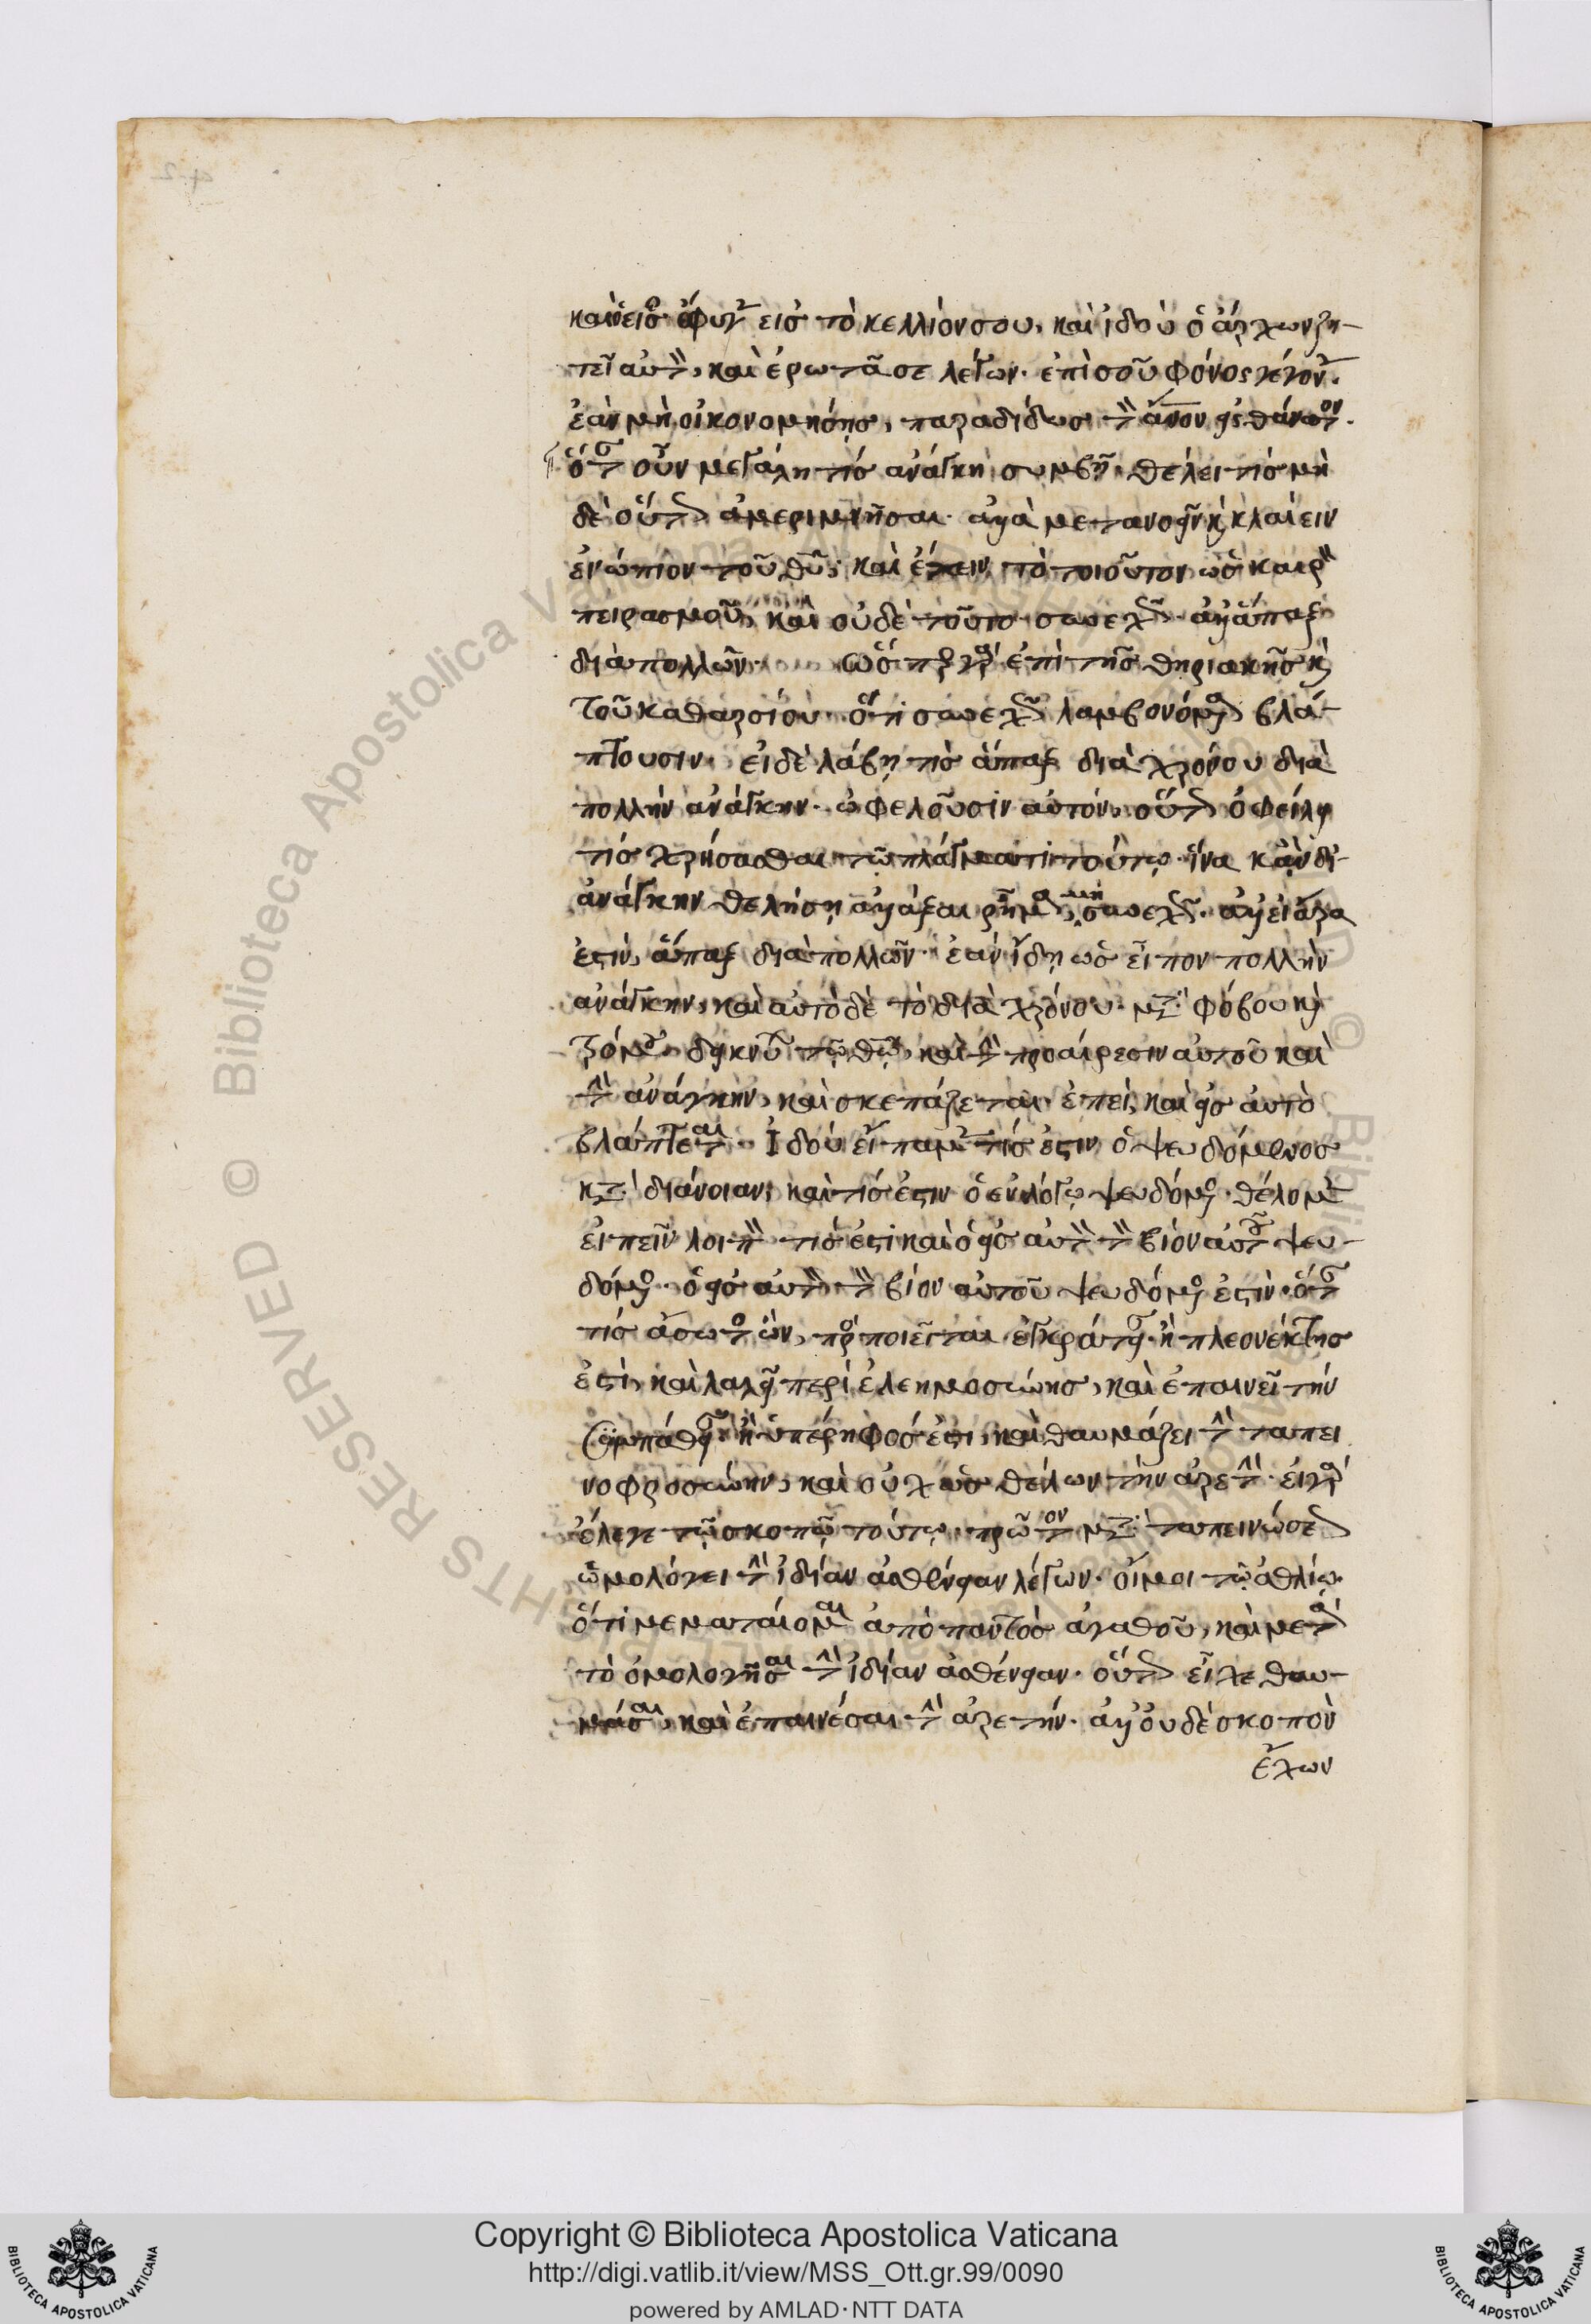 καὶ εἷς ἔφυγεν εἰς τὸ κελλίον σου. καὶ ἰδοὺ ὁ ἄρχων ζη-
τεῖ αὐτὸν, καὶ ἐρωτᾶ σε λέγων. ἐπὶ σοῦ φόνος γέγονεν.
ἐὰν μὴ οἰκονομήσῃς, παραδίδως τὸν ἄνον εἰς θάνατον.
ὅταν οὖν μεγάλη τίς ἀνάγκη συμβῇ. θέλει τίς μὴ
δὲ οὕτως ἀμεριμνῆσαι. ἀλλὰ μετανοεῖν καὶ κλαίειν
ἐνώπιον τοῦ θῦ, καὶ ἔχειν τὸ τοιοῦτον ὡς καιρὸν
πειρασμοῦ, καὶ οὐδὲ τοῦτο συνεχῶς. ἀλλ' ἅπαξ
διὰ πολλῶν. ὥσπερ γὰρ ἐπὶ τῆς θηριακῆς καὶ
τοῦ καθαρσίου. ὅτι συνεχῶς λαμβανόμενα βλά-
πτουσιν. εἰ δὲ λάβῃ τὶς ἅπαξ διὰ χρόνου διὰ
πολλὴν ἀνάγκην. ὠφελοῦσιν αὐτόν. οὕτως ὀφείλει
τίς χρήσασθαι τῷ πράγματι τούτῳ. ἵνα κἂν δι'
ἀνάγκην θελήσῃ ἀλλάξαι ῥῆμα, μὴ συνεχῶς. ἀλλ' εἰ ἄρα
ἐστὶν, ἅπαξ διὰ πολλῶν. ἐὰν ἴδῃ ὡς εἶπον πολλὴν
ἀνάγκην, καὶ αὐτὸ δὲ τὸ διὰ χρόνου. μετὰ φόβου καὶ
τρόμου δεικνύων τῷ θῶ καὶ τὴν προαίρεσιν αὐτοῦ καὶ
τὴν ἀνάγκην, καὶ σκεπάζεται. ἐπεὶ καὶ εἰς αὐτὸ
βλάπτεται. Ἰδού εἴπαμεν τίς ἐστιν ὁ ψευδόμενος
κατὰ διάνοιαν, καὶ τίς ἐστιν ὁ ἐν λόγῳ ψευδόμενος. θέλομεν
εἰπεῖν λοιπὸν τίς ἐστι καὶ ὁ εἰς αὐτὸν τὸν βίον αὐτοῦ ψευ-
δόμενος. ὁ εἰς αὐτὸν τὸν βίον αὐτοῦ ψευδόμενος ἐστὶν. ὅταν
τίς ἄσωτος ὢν, προσποιεῖται ἐγκράτειαν. ἢ πλεονέκτης
ἐστὶ, καὶ λαλεῖ περὶ ἐλεημοσύνης, καὶ ἐπαινεῖ τὴν
συμπάθειαν. ἢ ὑπερήφανός ἐστι, καὶ θαυμάζει τὴν ταπει
νοφροσύνην, καὶ οὐχ ὡς θέλων τὴν ἀρετὴν. εἰ γὰρ
ἔλεγε τῷ σκοπῷ τούτῳ. πρῶτον μετὰ ταπεινώσεως
ὡμολόγει τὴν ἰδίαν ἀσθένειαν λέγων. οἴμοι τῷ ἀθλίῳ.
ὅτι μεματαίομαι ἀπὸ παντὸς ἀγαθοῦ, καὶ μετὰ
τὸ ὁμολογῆσαι τὴν ἰδίαν ἀσθένειαν. οὕτως εἶχε θαυ-
μάσαι, καὶ ἐπαινέσαι τὴν ἀρετήν. ἀλλ' οὐδὲ σκοπὸν
ἔχων
Copyright © Biblioteca Apostolica Vaticana
http://digi.vatlib.it/view/MSS_Ott.gr.99/0090
powered by AMLAD·NTT DATA